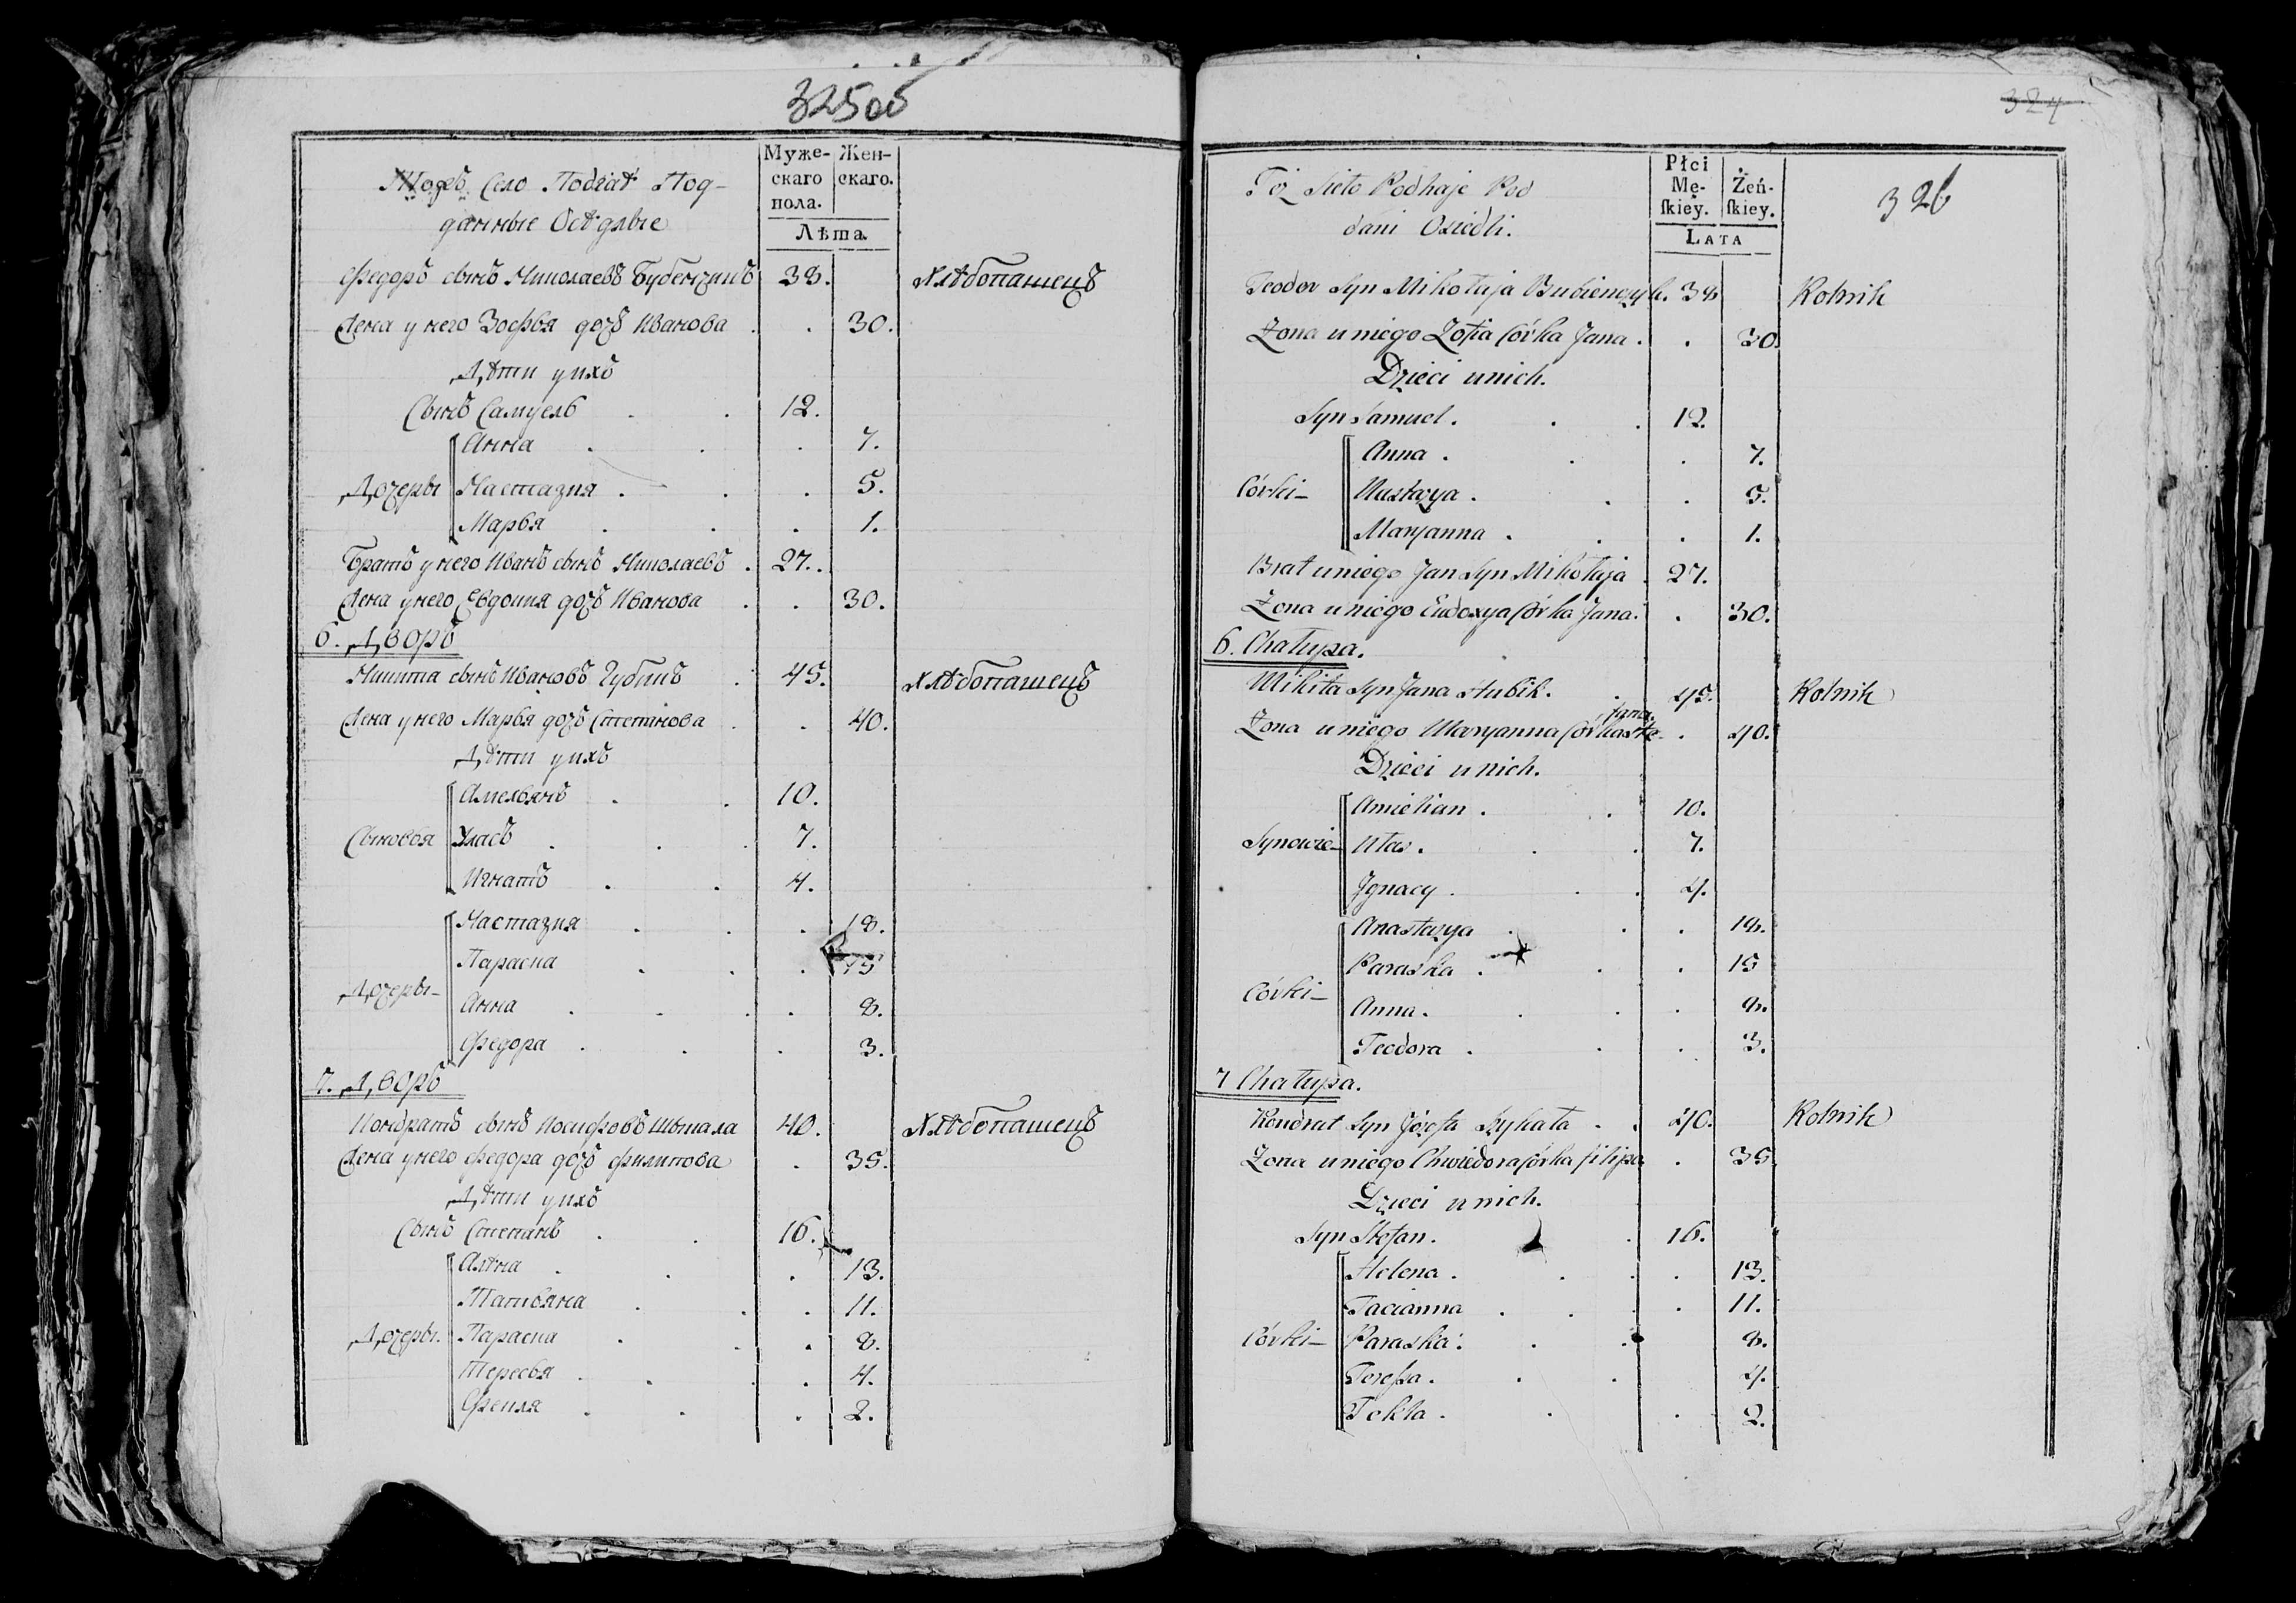 325об
Муже-
скаго
пола.
Жен-
скаго.
Лѣта.
Тожъ Село Подгаѣ Под-
данные Осѣдлые
Федоръ сынъ Николаевъ Бубенчикъ 38. Хлѣбопашецъ
Жена у него Зофья дочь Иванова . . 30.
Дѣти у ихъ
Сынъ Самуель . . 12.
Анна . . . 7.
Дочеры Настазия . . . 5.
Марья . . . 1.
Братъ у него Иванъ сынъ Николаевъ . 27.
Жена у него Евдокия дочь Иванова . . 30.
6. Дворъ
Никита сынъ Ивановъ Губикъ . 45. Хлѣбопашецъ
Жена у него Марья дочь Степанова . . 40.
Дѣти у ихъ
Амельянъ . . 10.
Сыновья Уласъ . . . 7.
Игнатъ . . 4.
Настазия . . . 18.
Параска . . . 15
Дочеры- Анна . . . . 8.
Федора . . . 3.
7. Дворъ
Кондратъ сынъ Иосифовъ Шыкала 40. Хлѣбопашецъ
Жена у него Федора дочь Филипова . 35.
Дѣти у ихъ
Сынъ Степанъ . . 16.
Алѣна . . . 13.
Татьяна . . . 11.
Дочеры. Параска . . . 8.
Тересья . . . . 4.
Фекля . . . 2.
324
326
Płci
Mę-
ſkiey.
Żeń-
ſkiey.
LATA
Toż Sieło Podhaje Pod
dani Osiedli.
Teodor Syn Mikołaja Bubienczyk. 38 Rolnik
Żona u niego Zofia Córka Jana . . 30.
Dzieci u nich.
Syn Samuel . . . 12.
Anna . . . 7.
Córki- Nastazya . . . 5.
Maryanna . . . 1.
Brat u niego Jan Syn Mikołaja . 27.
Żona u niego Eudoxya Córka Jana. . 30.
6. Chałupa.
Mikita Syn Jana Hubik . . 45. Rolnik
Żona u niego Maryanna Córka Ste- . 40.
fana.
Dzieci u nich.
Amielian . . 10.
Synowie- Ułas . . . 7.
Jgnacy . . . 4.
Anastazya . . . 18.
Paraska . . . 15
Córki- Anna . . . . 8.
Teodora . . . 3.
7 Chałupa.
Kondrat Syn Józefa Szykała . . 40. Rolnik
Żona u niego Chwiedora Córka filipa . 35
Dzieci u nich.
Syn Stefan . . 16.
Helena . . . . 13.
Tacianna . . . . 11.
Córki- Paraska . . . 8.
Tereſsa . . . 4.
Tekla . . . 2.